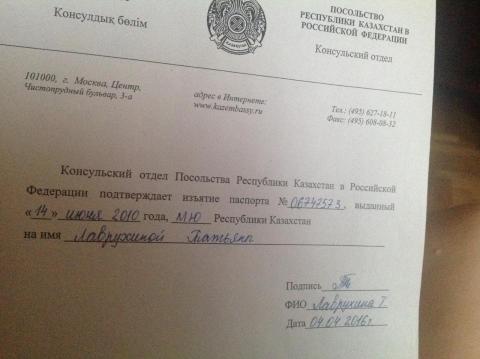 Консулдық бөлім
ПОСОЛЬСТВО
РЕСПУБЛИКИ КАЗАХСТАН В
РОССИЙСКОЙ ФЕДЕРАЦИИ
Консульский отдел
101000, г. Москва, Центр,
Чистопрудный бульвар, 3-а
адрес в Интернете:
www.kazembassy.ru
Тел.: (495) 627-18-11
Факс: (495) 608-08-32
Консульский отдел Посольства Республики Казахстан в Российской
Федерации подтверждает изъятие паспорта № 06747573, выданный
«14» июня 2010 года, МЮ Республики Казахстан
на имя Лаврухиной Татьяны
Подпись
ФИО Лаврухина Т
Дата 04.04.2016г.